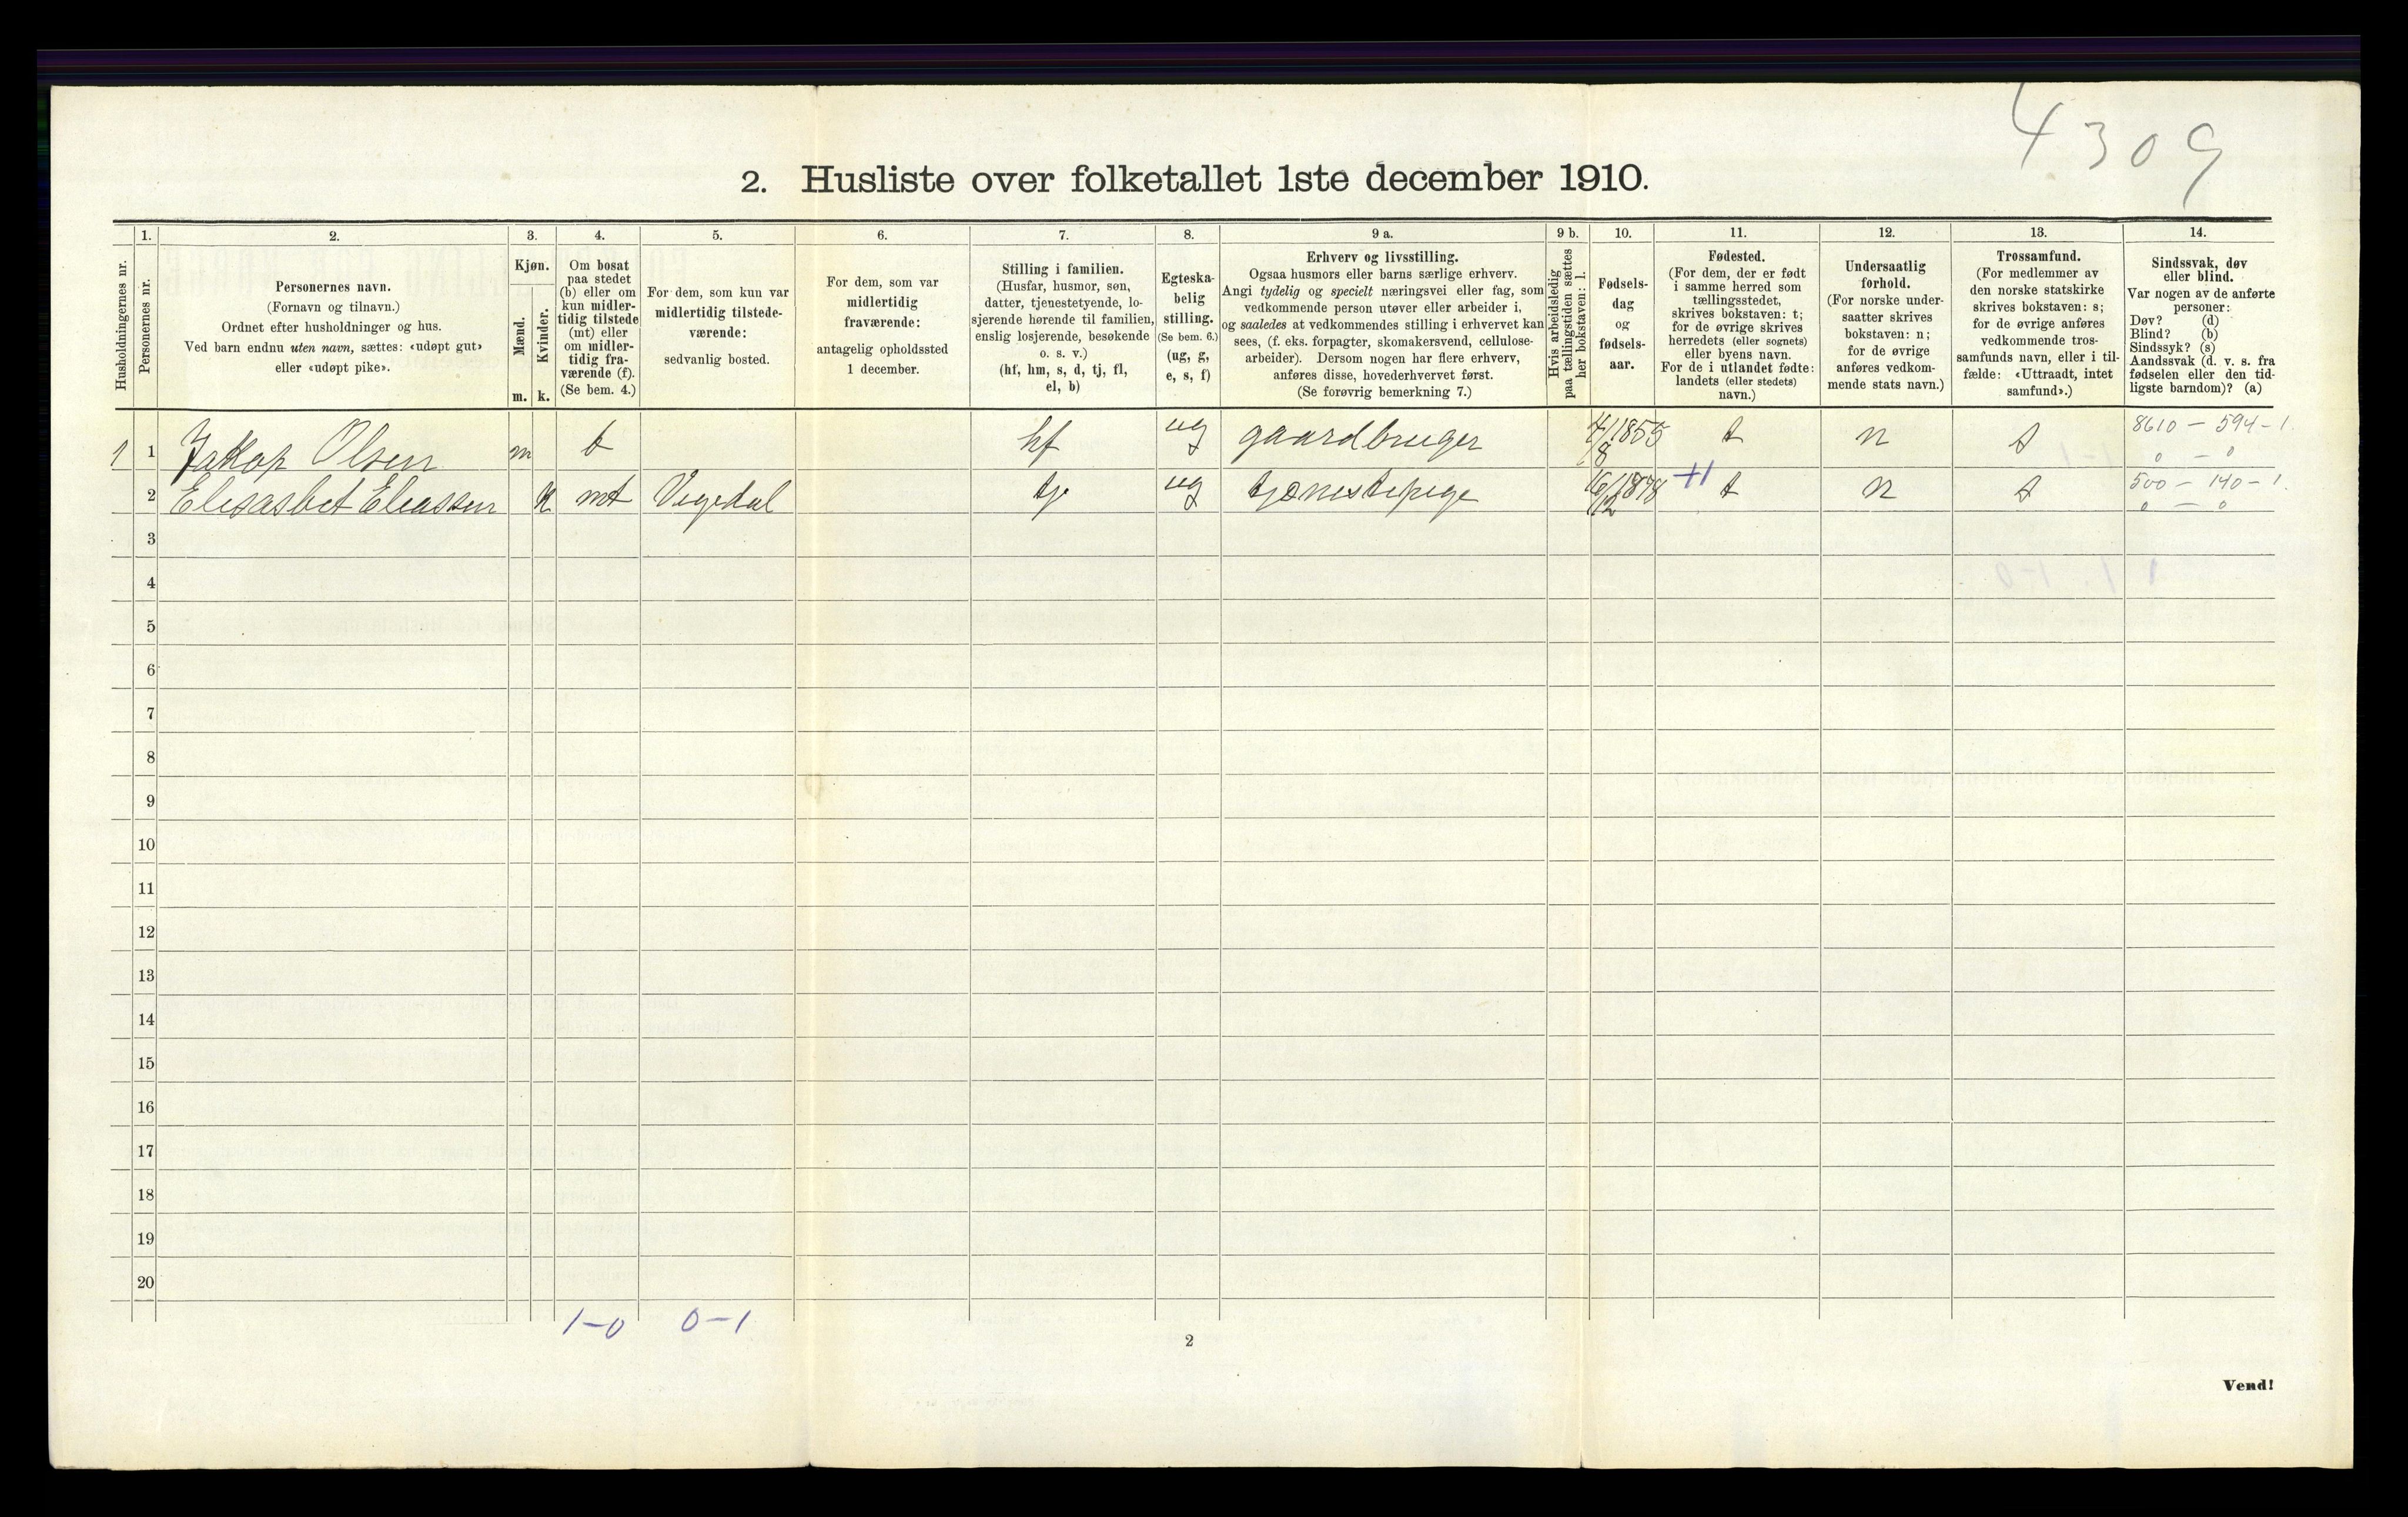 4309
2. Husliste over folketallet 1ste december 1910.
Husholdningernes nr.
1.
Personernes nr.
2.
Personernes navn.
(Fornavn og tilnavn.)
Ordnet efter husholdninger og hus.
Ved barn endnu uten navn, sættes: «udøpt gut»
eller «udøpt pike».
3.
Kjøn.
Mænd.
Kvinder.
m. k.
4.
Om bosat
paa stedet
(b) eller om
kun midler-
tidig tilstede
(mt) eller
om midler-
tidig fra-
værende (f).
(Se bem. 4.)
5.
For dem, som kun var
midlertidig tilstede-
værende:
sedvanlig bosted.
6.
For dem, som var
midlertidig
fraværende:
antagelig opholdssted
1 december.
7.
Stilling i familien.
(Husfar, husmor, søn,
datter, tjenestetyende, lo-
sjerende hørende til familien,
enslig losjerende, besøkende
o. s. v.)
(hf, hm, s, d, tj, fl,
el, b)
8.
Egteska-
belig
stilling.
(Se bem. 6.)
(ug, g,
e, s, f)
9 a.
Erhverv og livsstilling.
Ogsaa husmors eller barns særlige erhverv.
Angi tydelig og specielt næringsvei eller fag, som
vedkommende person utøver eller arbeider i,
og saaledes at vedkommendes stilling i erhvervet kan
sees, (f. eks. forpagter, skomakersvend, cellulose-
arbeider). Dersom nogen har flere erhverv,
anføres disse, hovederhvervet først.
(Se forøvrig bemerkning 7.)
9 b.
Hvis arbeidsledig
paa tællingstiden sættes
her bokstaven: l.
10.
Fødsels-
dag
og
fødsels-
aar.
11.
Fødested.
(For dem, der er født
i samme herred som
tællingsstedet,
skrives bokstaven: t;
for de øvrige skrives
herredets (eller sognets)
eller byens navn.
For de i utlandet fødte:
landets (eller stedets)
navn.)
12.
Undersaatlig
forhold.
(For norske under-
saatter skrives
bokstaven: n;
for de øvrige
anføres vedkom-
mende stats navn.)
13.
Trossamfund.
(For medlemmer av
den norske statskirke
skrives bokstaven: s;
for de øvrige anføres
vedkommende tros-
samfunds navn, eller i til-
fælde: «Uttraadt, intet
samfund».)
14.
Sindssvak, døv
eller blind.
Var nogen av de anførte
personer:
Døv? (d)
Blind? (b)
Sindssyk? (s)
Aandssvak (d. v. s. fra
fødselen eller den tid-
ligste barndom)? (a)
1 1 Jakop Olsen m b hf ug gaardbruger 4/8 1855 t n s 8610 - 594 - 1.
0 - 0
2 Elisasbet Eleassen k mt Vegedal tj ug tjænestepige 16/12 1878 +1 t n s 500 - 140 - 1.
0 - 0
3
4
5
6
7
8
9
10
11
12
13
14
15
16
17
18
19
20
1-0 0-1
2
Vend!